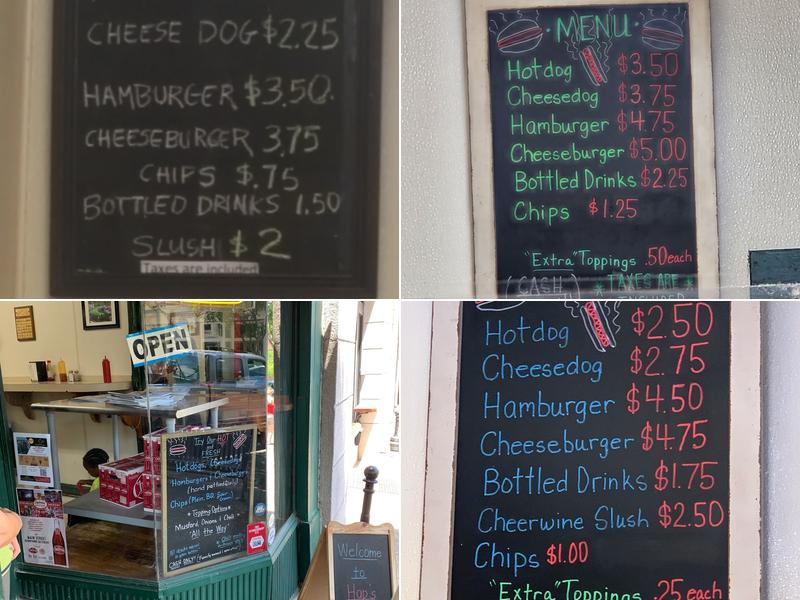 CHEESE DOG $2.25
HAMBURGER $3.50
CHEESEBURGER 3.75
CHIPS $.75
BOTTLED DRINKS 1.50
SLUSH $2
Taxes are included
MENU
Hotdog $3.50
Cheesedog $3.75
Hamburger $4.75
Cheeseburger $5.00
Bottled Drinks $2.25
Chips $1.25
"Extra" Toppings .50 each
CASH
*TAXES ARE
INCLUDED
OPEN
Try Our HOT
and
FRESH
Hotdogs, Cheesedogs
Hamburgers + Cheeseburgers
(hand pattied)
Chips (Plain, BBQ,
*Topping Options*
Mustard, Onions & Chili
"All the Way"
CASH ONLY!
Welcome
to
Hap's
Hotdog $2.50
Cheesedog $2.75
Hamburger $4.50
Cheeseburger $4.75
Bottled Drinks $1.75
Cheerwine Slush $2.50
Chips $1.00
"Extra" Toppings .25 each